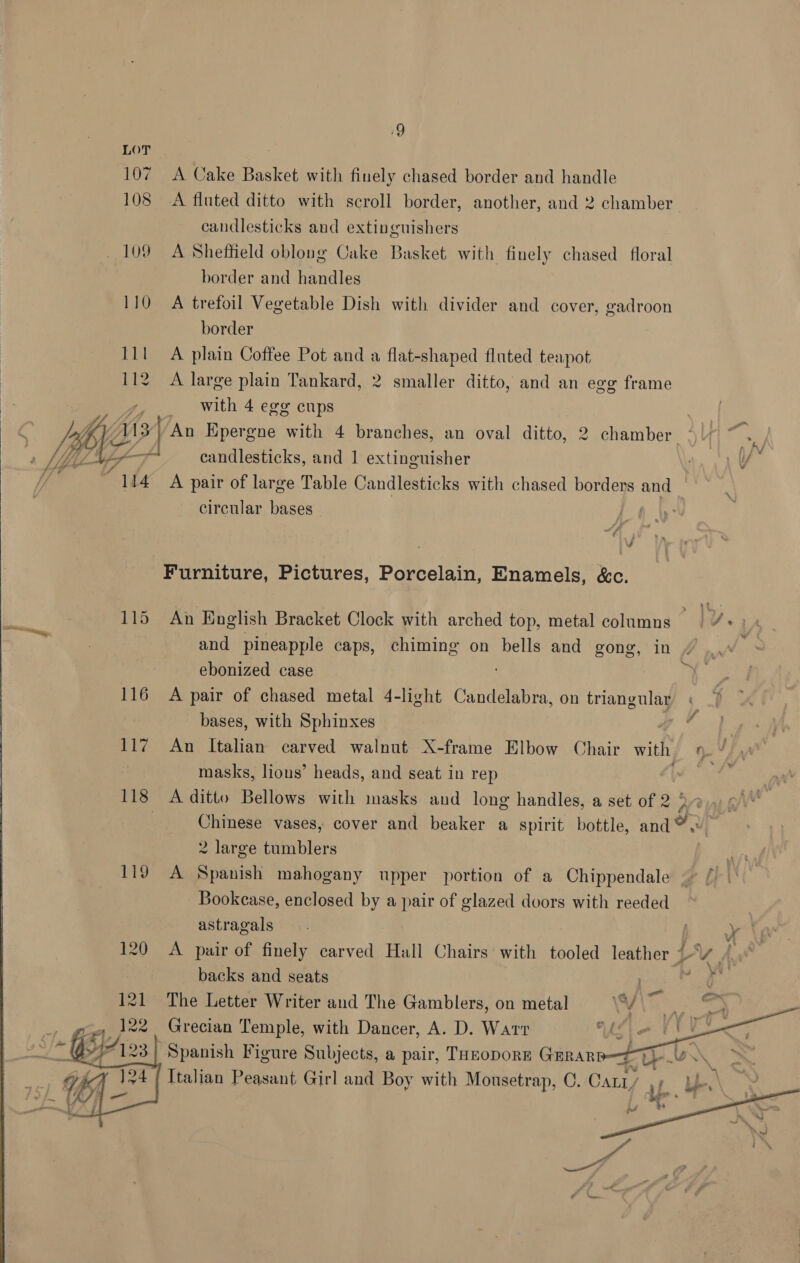 9
LOT
107 A Cake Basket with finely chased border and handle
108 A fluted ditto with scroll border, another, and 2 chamber
candlesticks and extinguishers
109 A Sheffield oblong Cake Basket with finely chased floral
border and handles
110 A trefoil Vegetable Dish with divider and cover, gadroon
border
111 A plain Coffee Pot and a flat-shaped fluted teapot
112 A large plain Tankard, 2 smaller ditto, and an egg frame
with 4 egg cups
113 An Epergne with 4 branches, an oval ditto, 2 chamber
candlesticks, and 1 extinguisher
114 A pair of large Table Candlesticks with chased borders and
circular bases
Furniture, Pictures, Porcelain, Enamels, &c.
115 An English Bracket Clock with arched top, metal columns
and pineapple caps, chiming on bells and gong, in
ebonized case
116 A pair of chased metal 4-light Candelabra, on triangular
bases, with Sphinxes
117 An Italian carved walnut X-frame Elbow Chair with
masks, lions' heads, and seat in rep
118 A ditto Bellows with masks and long handles, a set of 2
Chinese vases, cover and beaker a spirit bottle, and
2 large tumblers
119 A Spanish mahogany upper portion of a Chippendale
Bookcase, enclosed by a pair of glazed doors with reeded
astragals
120 A pair of finely carved Hall Chairs with tooled leather
backs and seats
121 The Letter Writer and The Gamblers, on metal
122 Grecian Temple, with Dancer, A. D. WATT
123 Spanish Figure Subjects, a pair, THEODORE GERARD
124 Italian Peasant Girl and Boy with Mousetrap, C. CALI